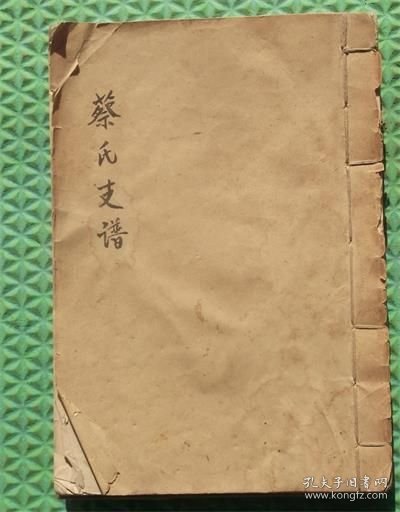 蔡氏支谱
孔夫子旧书网
www.kongfz.com